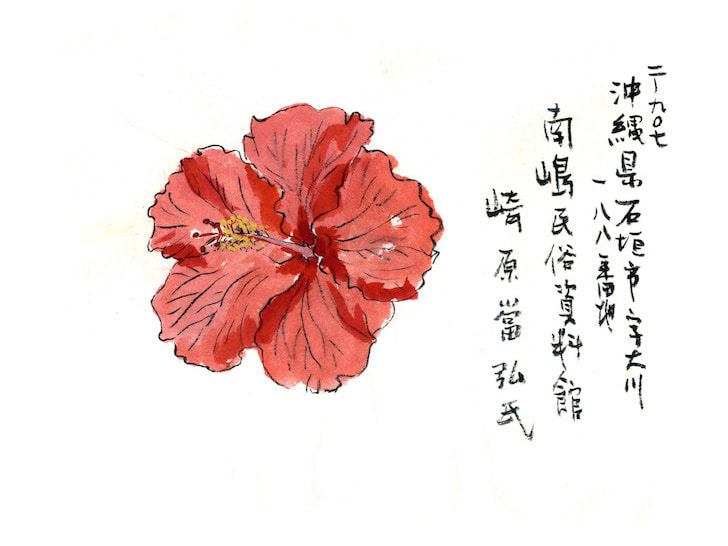 二-九〇七
沖縄県石垣市字大川
一八八番地
南嶋民俗資料館
崎原當弘氏